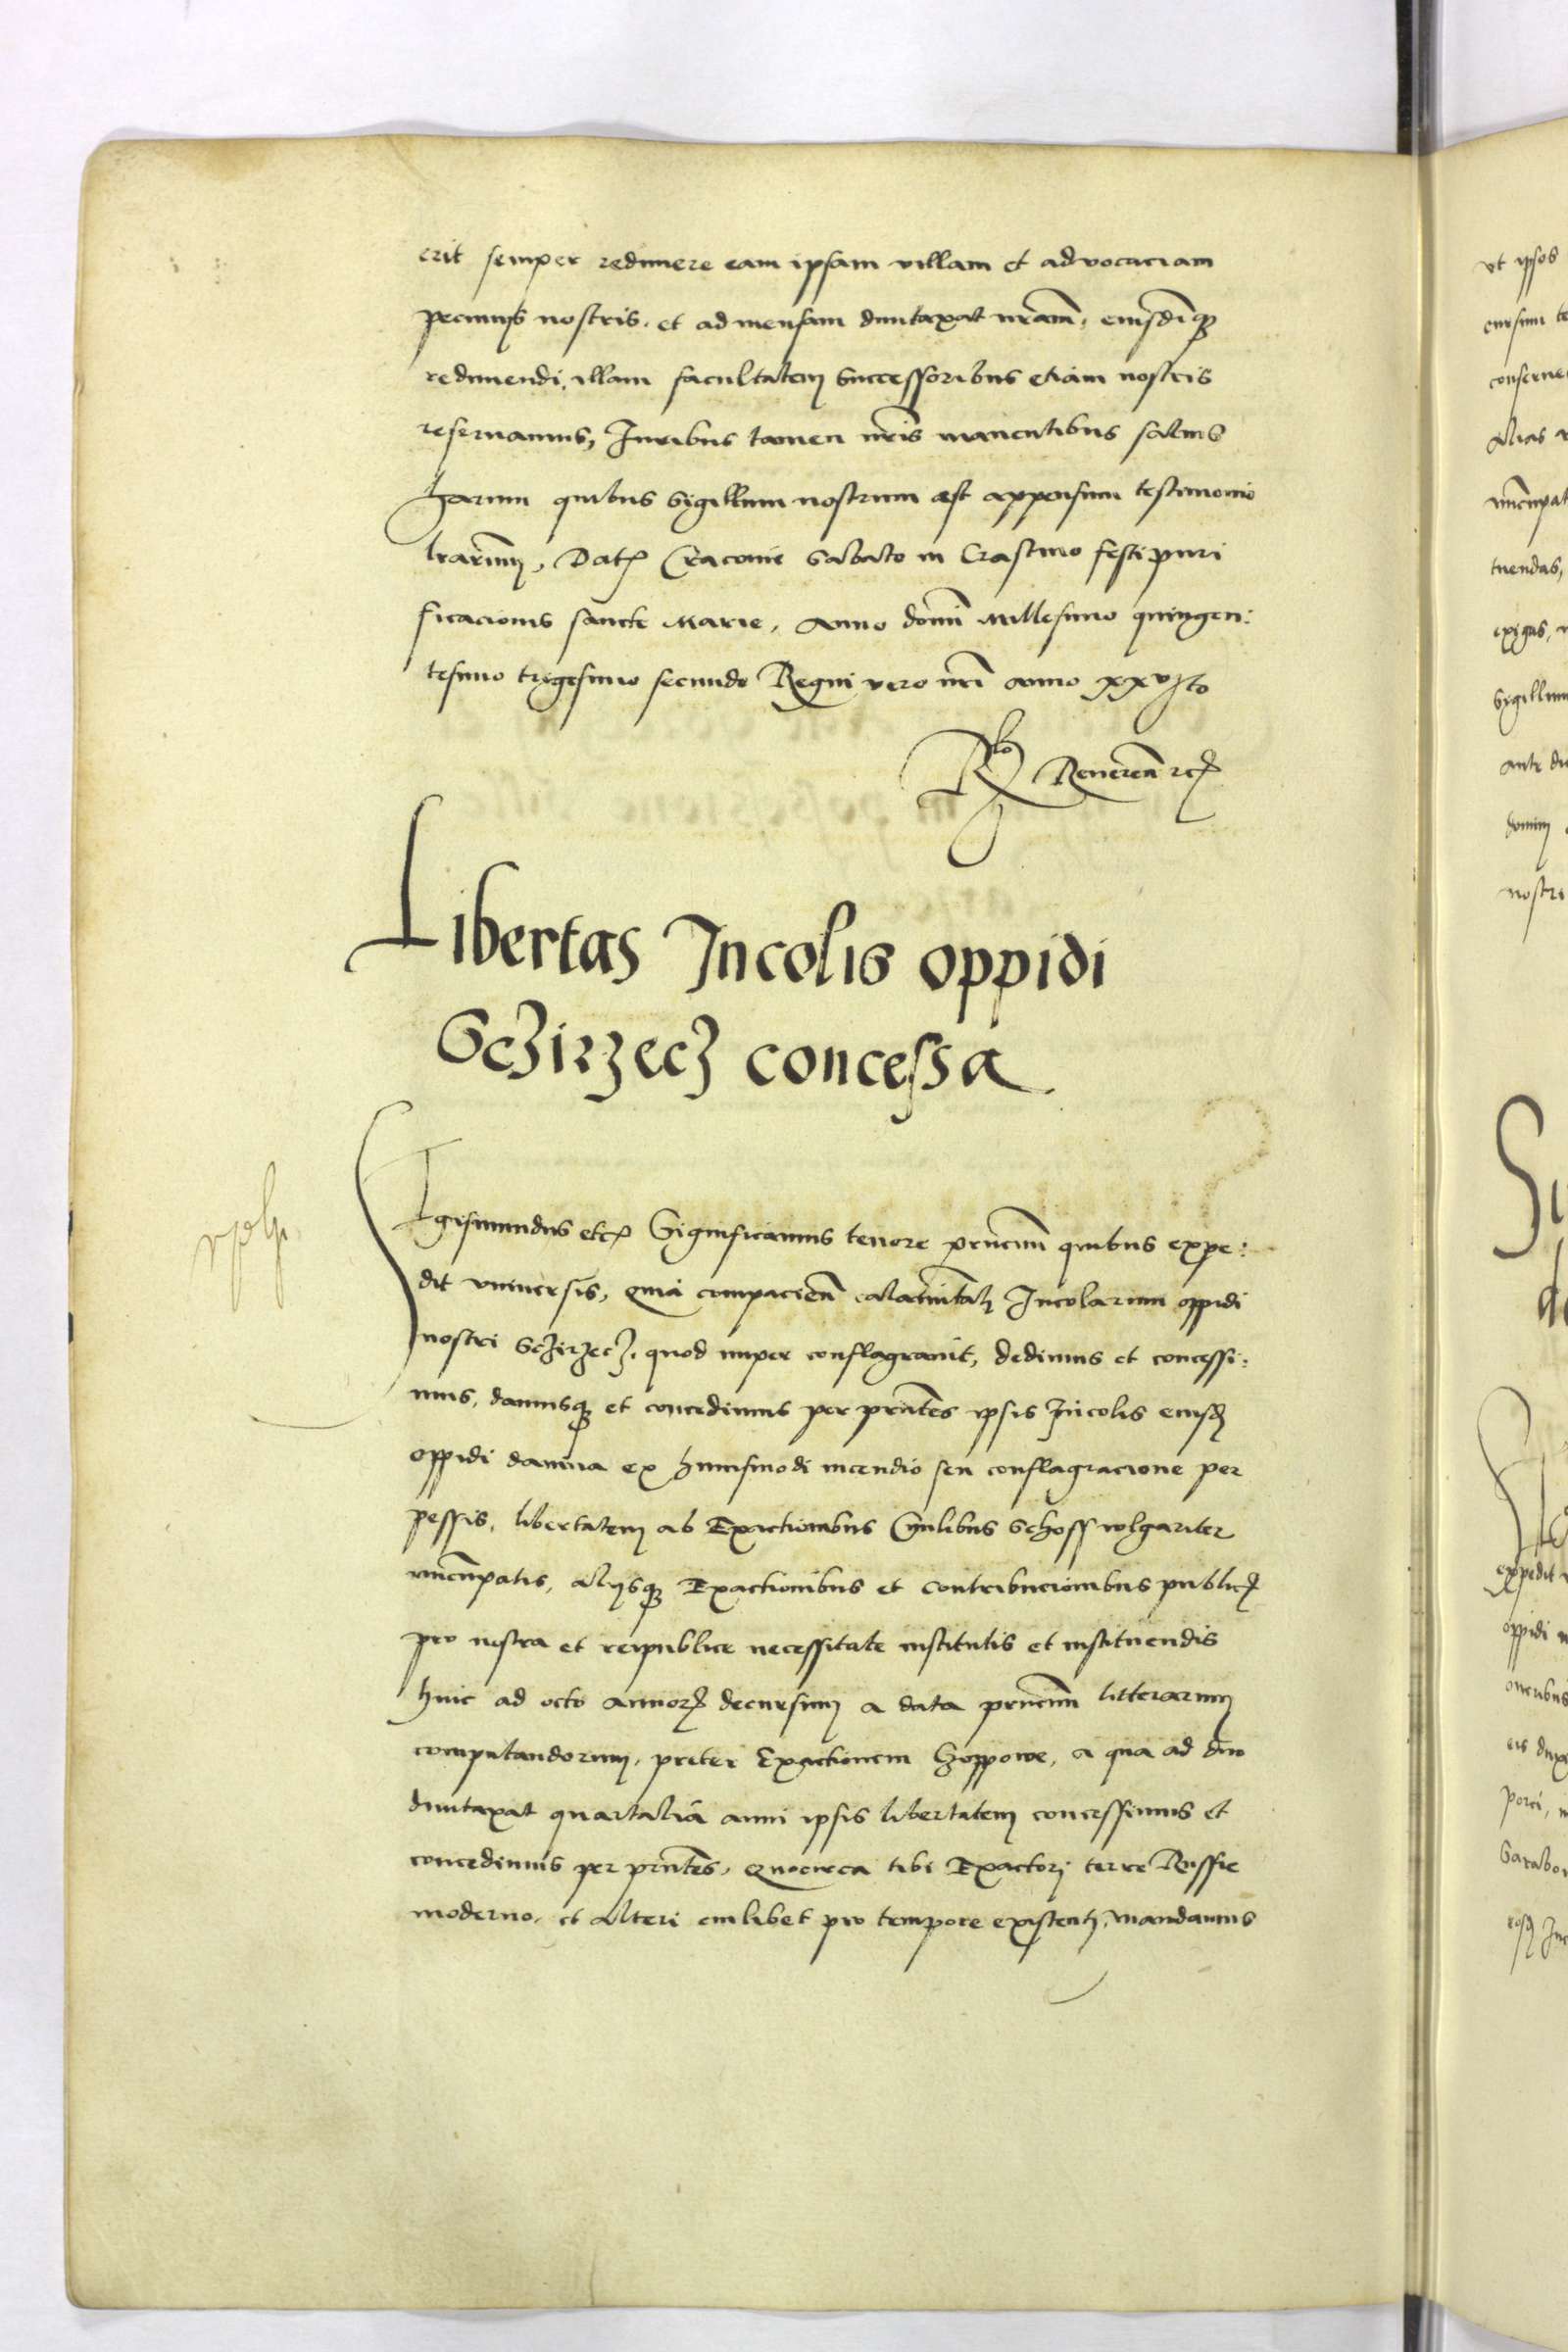 erit semper redimere eam ipsam villam et advocaciam
pecunijs nostris. et ad mensam duntaxat nram, eiusdiqȝ
redimendi, illam facultatem Successoribus etiam nostris
reservamus, Iuribus tamen nris manentibus salvis
harum quibus Sigillum nostrum est appensum testimonio
lrarum, Datꝭ Cracovie Sabato in Crastino festi puri
ficacionis sancte Marie, Anno domi Millesimo quingen:
tesimo trigesimo secundo Regni vero nri anno xxvjto
Rlo Reveren rcꝭ
Libertas Incolis oppidi
Sczirzecz concessa
Sigismundus etcꝭ Significamus tenore prncium quibus expe:
dit universis, Quia compacien calamitati Incolarum oppidi
nostri Sczirzecz, quod nuper conflagravit, dedimus et concessi:
mus, damusqȝ et concedimus per prntes ipsis Incolis eiusd
oppidi damna ex huiusmodi incendio seu conflagracione per
pessis, libertatem ab Exactionibus Civilibus Schoss wlgariter
nuncupatis, alijsqȝ Exactionibus et contribucionibus publicꝭ
pro nostra et reipublice necessitate institutis et instituendis
hinc ad octo annorꝭ decursum a data prncium litterarum
computandorum, preter Exactionem Czoppowe, a qua ad duo
duntaxat quartalia anni ipsis libertatem concessimus et
concedimus per prntes, Quocirca tibi Exactori terre Russie
moderno, et alteri cuilibet pro tempore existenti, mandamus
ut ipsos
cursum
conserve
alias
nuncupat
tuendas,
Sigillum
ante
domini
nostri
expedit
oppidi
oneribus